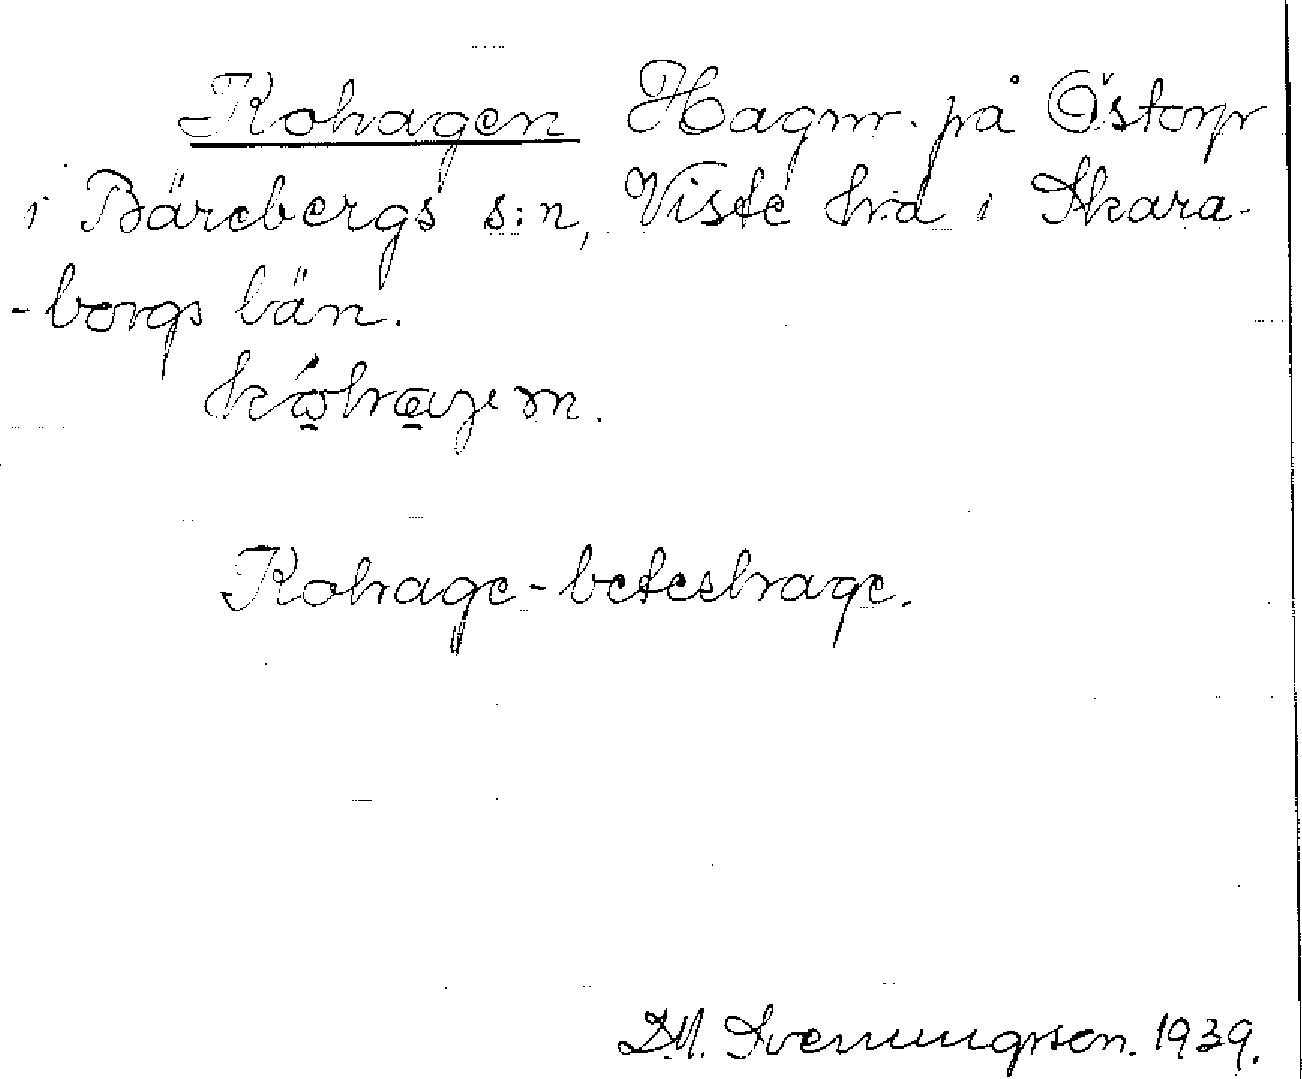 Kohagen Hagm. på Östorp
i Bärebergs s:n, Viste hd i Skara-
-borgs län.
Kohage - beteshage.
D.M. Svenungsson. 1939.